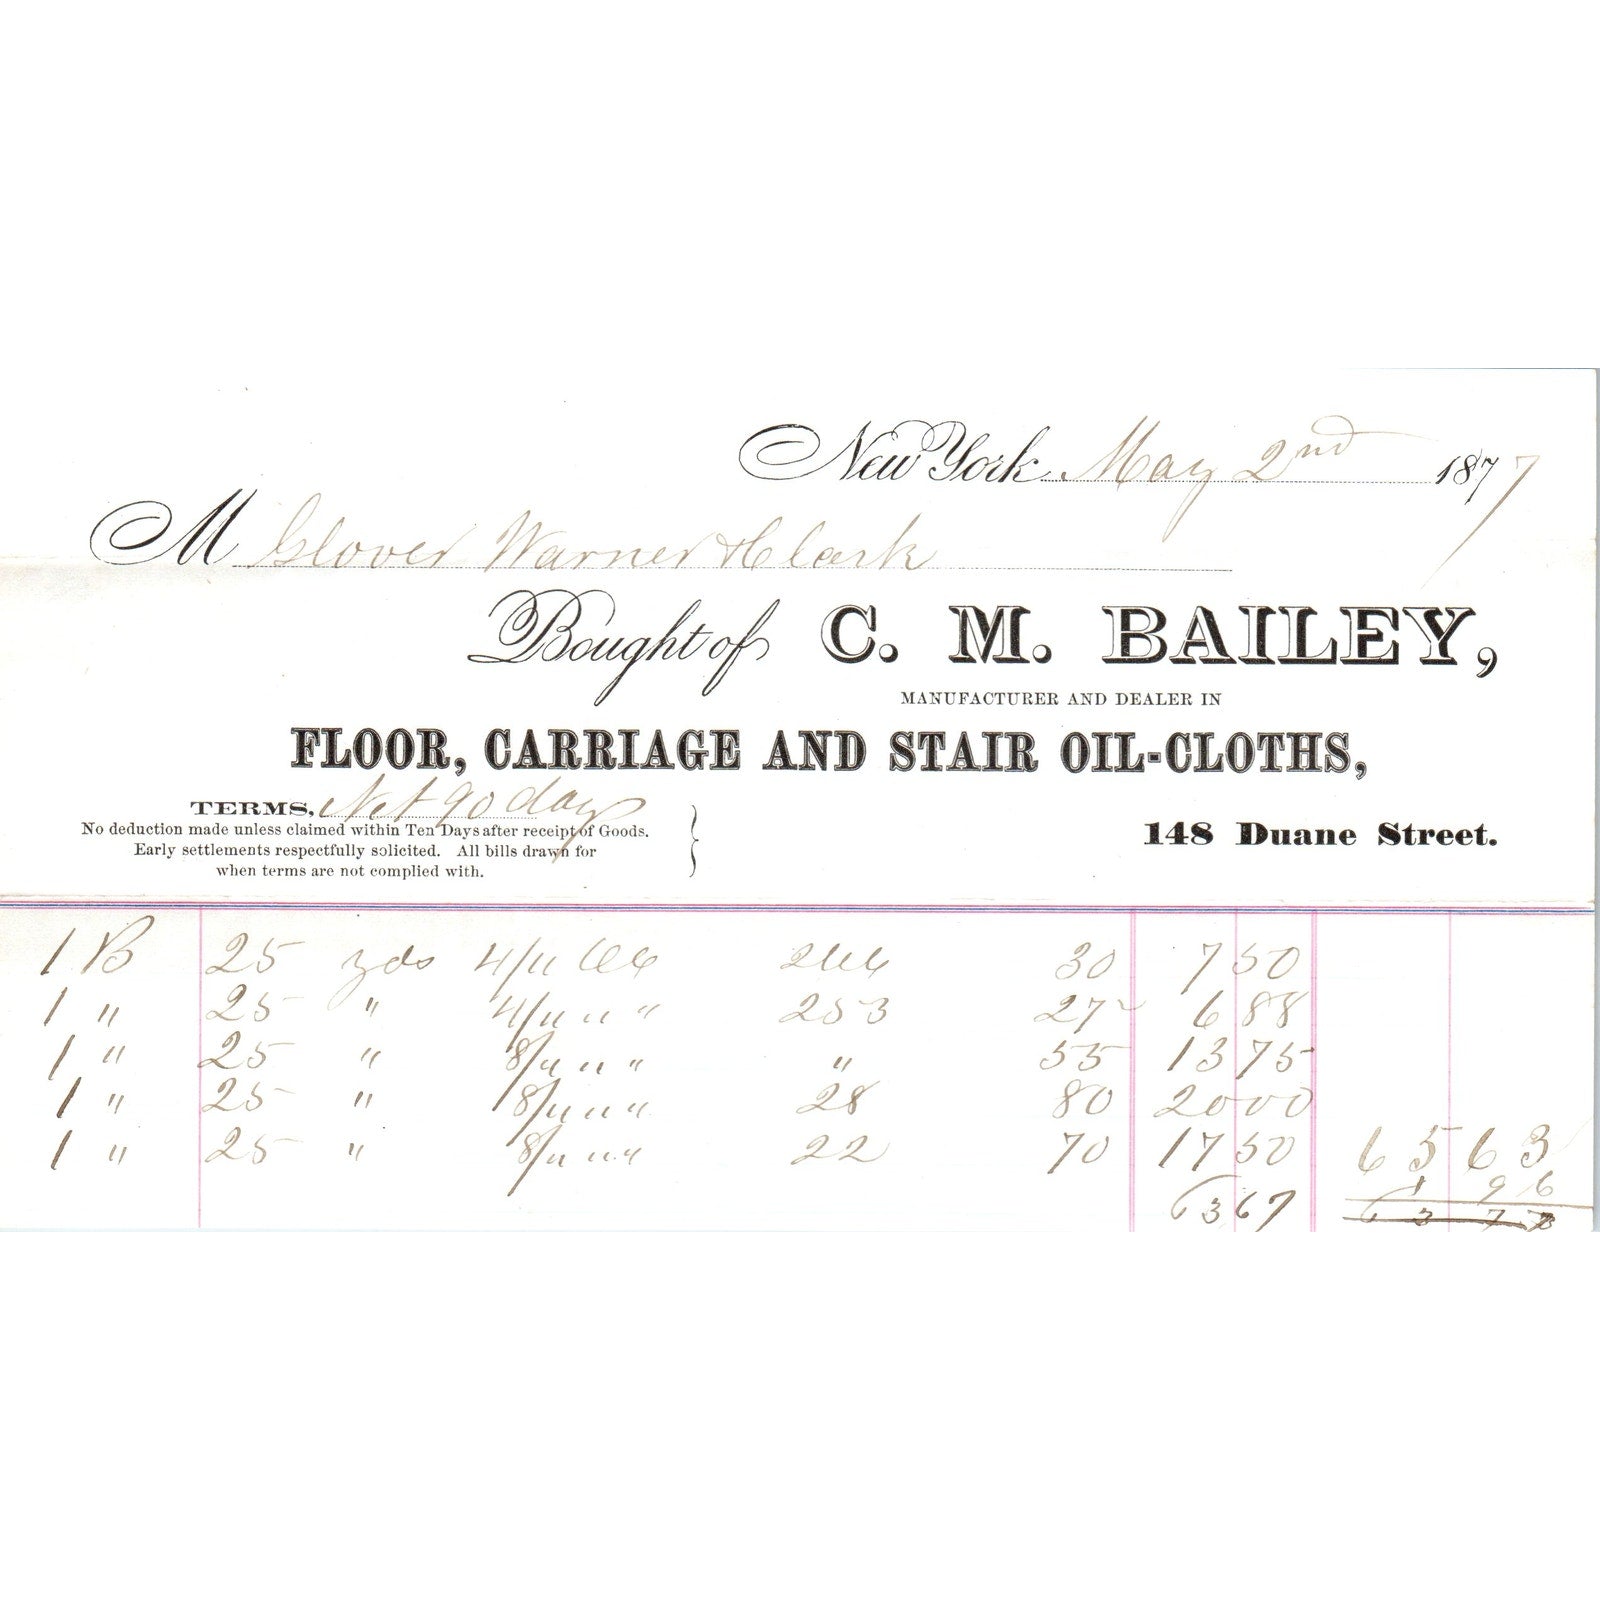 New York May 2nd 1877
M Glover Warner & Clark
Bought of C. M. BAILEY,
MANUFACTURER AND DEALER IN
FLOOR, CARRIAGE AND STAIR OIL-CLOTHS,
TERMS, Net 90 days
No deduction made unless claimed within Ten Days after receipt of Goods.
Early settlements respectfully solicited. All bills drawn for
when terms are not complied with.
148 Duane Street.
1 B 25 yds 4/4 30 7 50
1 " 25 " 4/4 " " 253 27 6 88
1 " 25 " 8/4 " " " 55 13 75
1 " 25 " 8/4 " " 28 80 20 00
1 " 25 " 8/4 " " 22 70 17 50 65 63
1 96
63 67 63 77